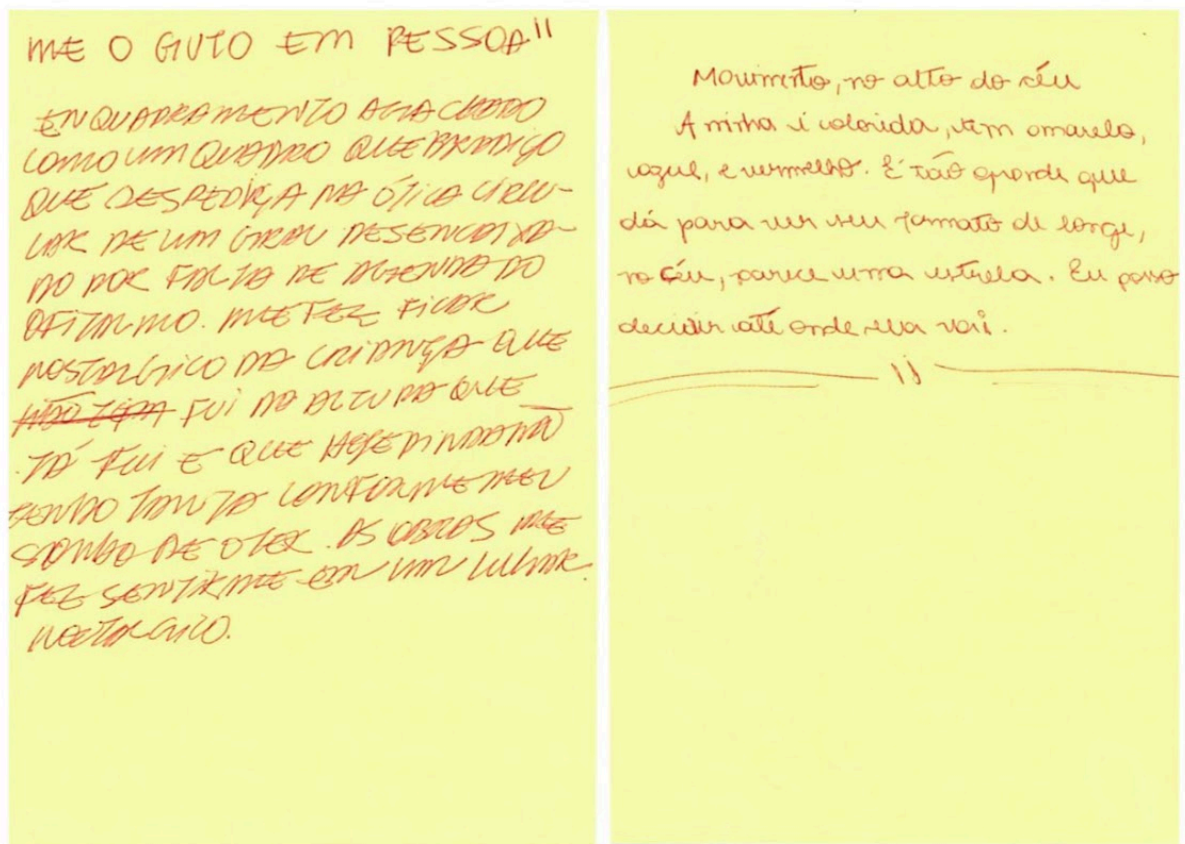 ME O GUTO EM PESSOA"
ENQUADRAMENTO AGACHADO
COMO UM QUADRO QUEBRADIÇO
QUE DESPEDIÇA NA ÓTICA CIRCU-
LAR DE UM GRAU DESENCAIXA-
DO POR FALTA DE AGENDA DO
OFITALMO. ME FEZ FICAR
NOSTALGICO DA CRIANÇA QUE
FUI NA ALTURA QUE
JÁ FUI E QUE AINDA NÃO
TENHO TANTA CONFORME MEU
SONHO DE TER. AS OBRAS ME
FEZ SENTIR-ME EM UM LUGAR
NOSTALGICO.
Movimento, no alto do céu
A minha é colorida, tem amarelo,
azul, e vermelho. É tão grande que
dá para ver seu formato de longe,
no céu, parece uma estrela. Eu posso
decidir até onde ela vai.